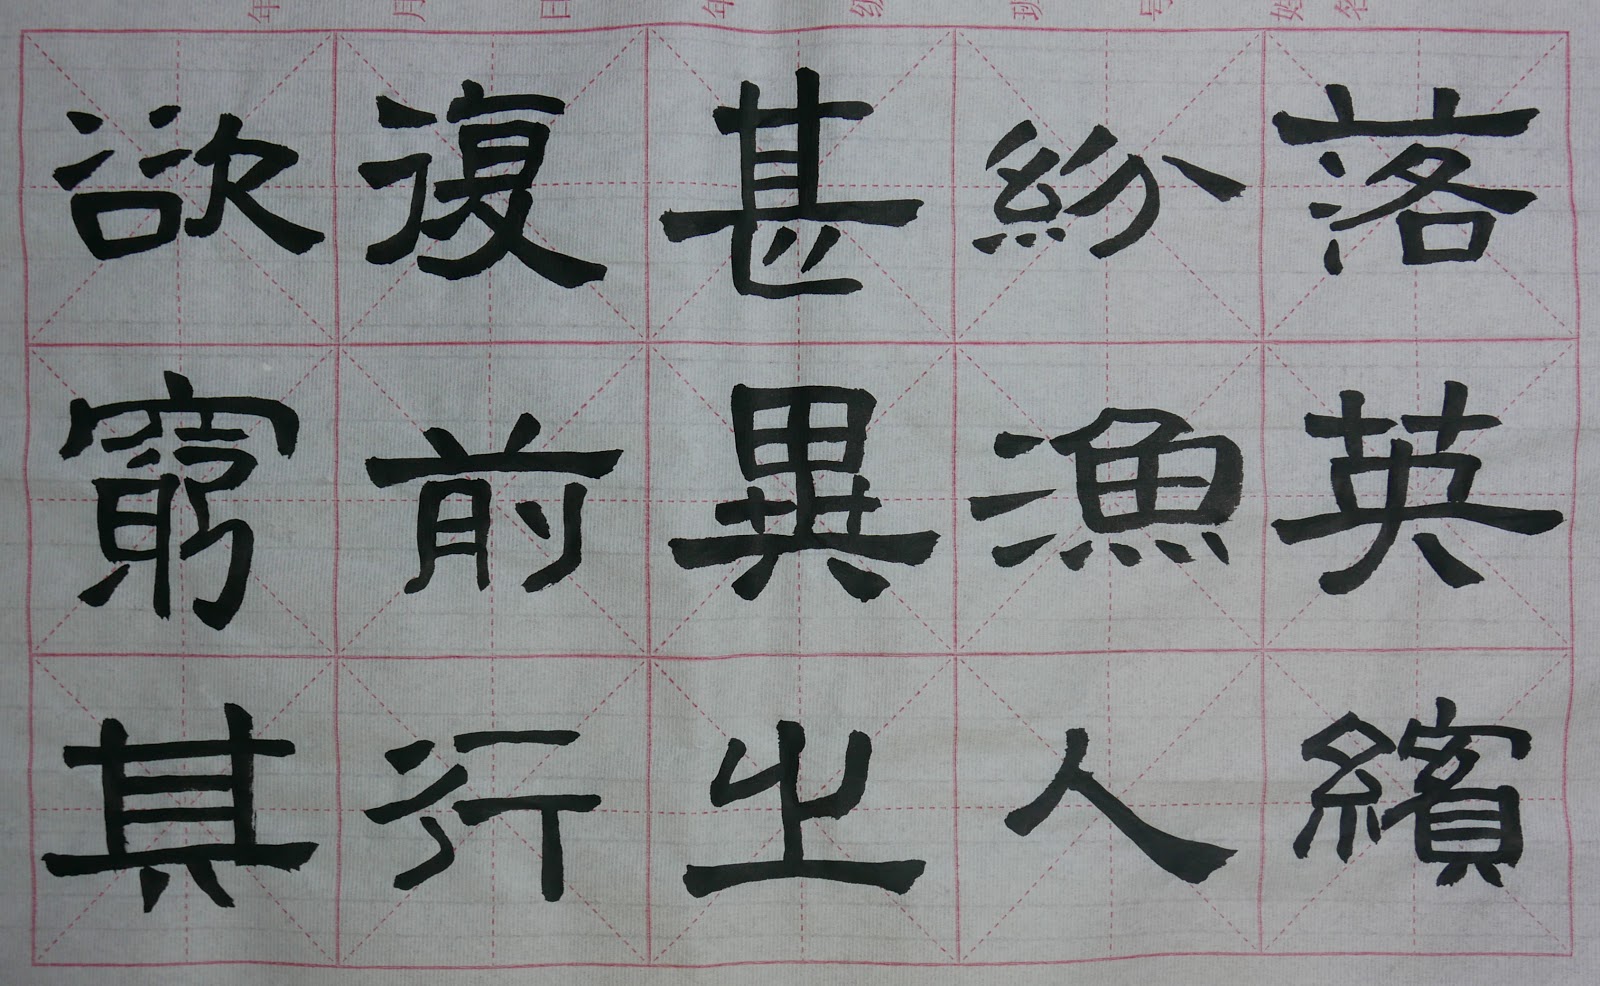 落英繽
紛漁人
甚異之
復前行
欲窮其